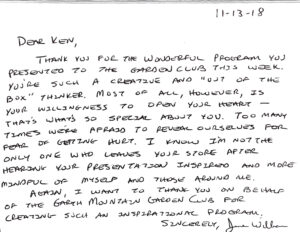 11-13-18
DEAR KEN,
THANK YOU FOR THE WONDERFUL PROGRAM YOU
PRESENTED TO THE GARDEN CLUB THIS WEEK.
YOU'RE SUCH A CREATIVE AND "OUT OF THE
BOX" THINKER. MOST OF ALL, HOWEVER, IS
YOUR WILLINGNESS TO OPEN YOUR HEART —
THAT'S WHAT'S SO SPECIAL ABOUT YOU. TOO MANY
TIMES WE'RE AFRAID TO REVEAL OURSELVES FOR
FEAR OF GETTING HURT. I KNOW I'M NOT THE
ONLY ONE WHO LEAVES YOUR STORE AFTER
HEARING YOUR PRESENTATION INSPIRED AND MORE
MINDFUL OF MYSELF AND THOSE AROUND ME.
AGAIN, I WANT TO THANK YOU ON BEHALF
OF THE GARTH MOUNTAIN GARDEN CLUB FOR
CREATING SUCH AN INSPIRATIONAL PROGRAM.
SINCERELY,